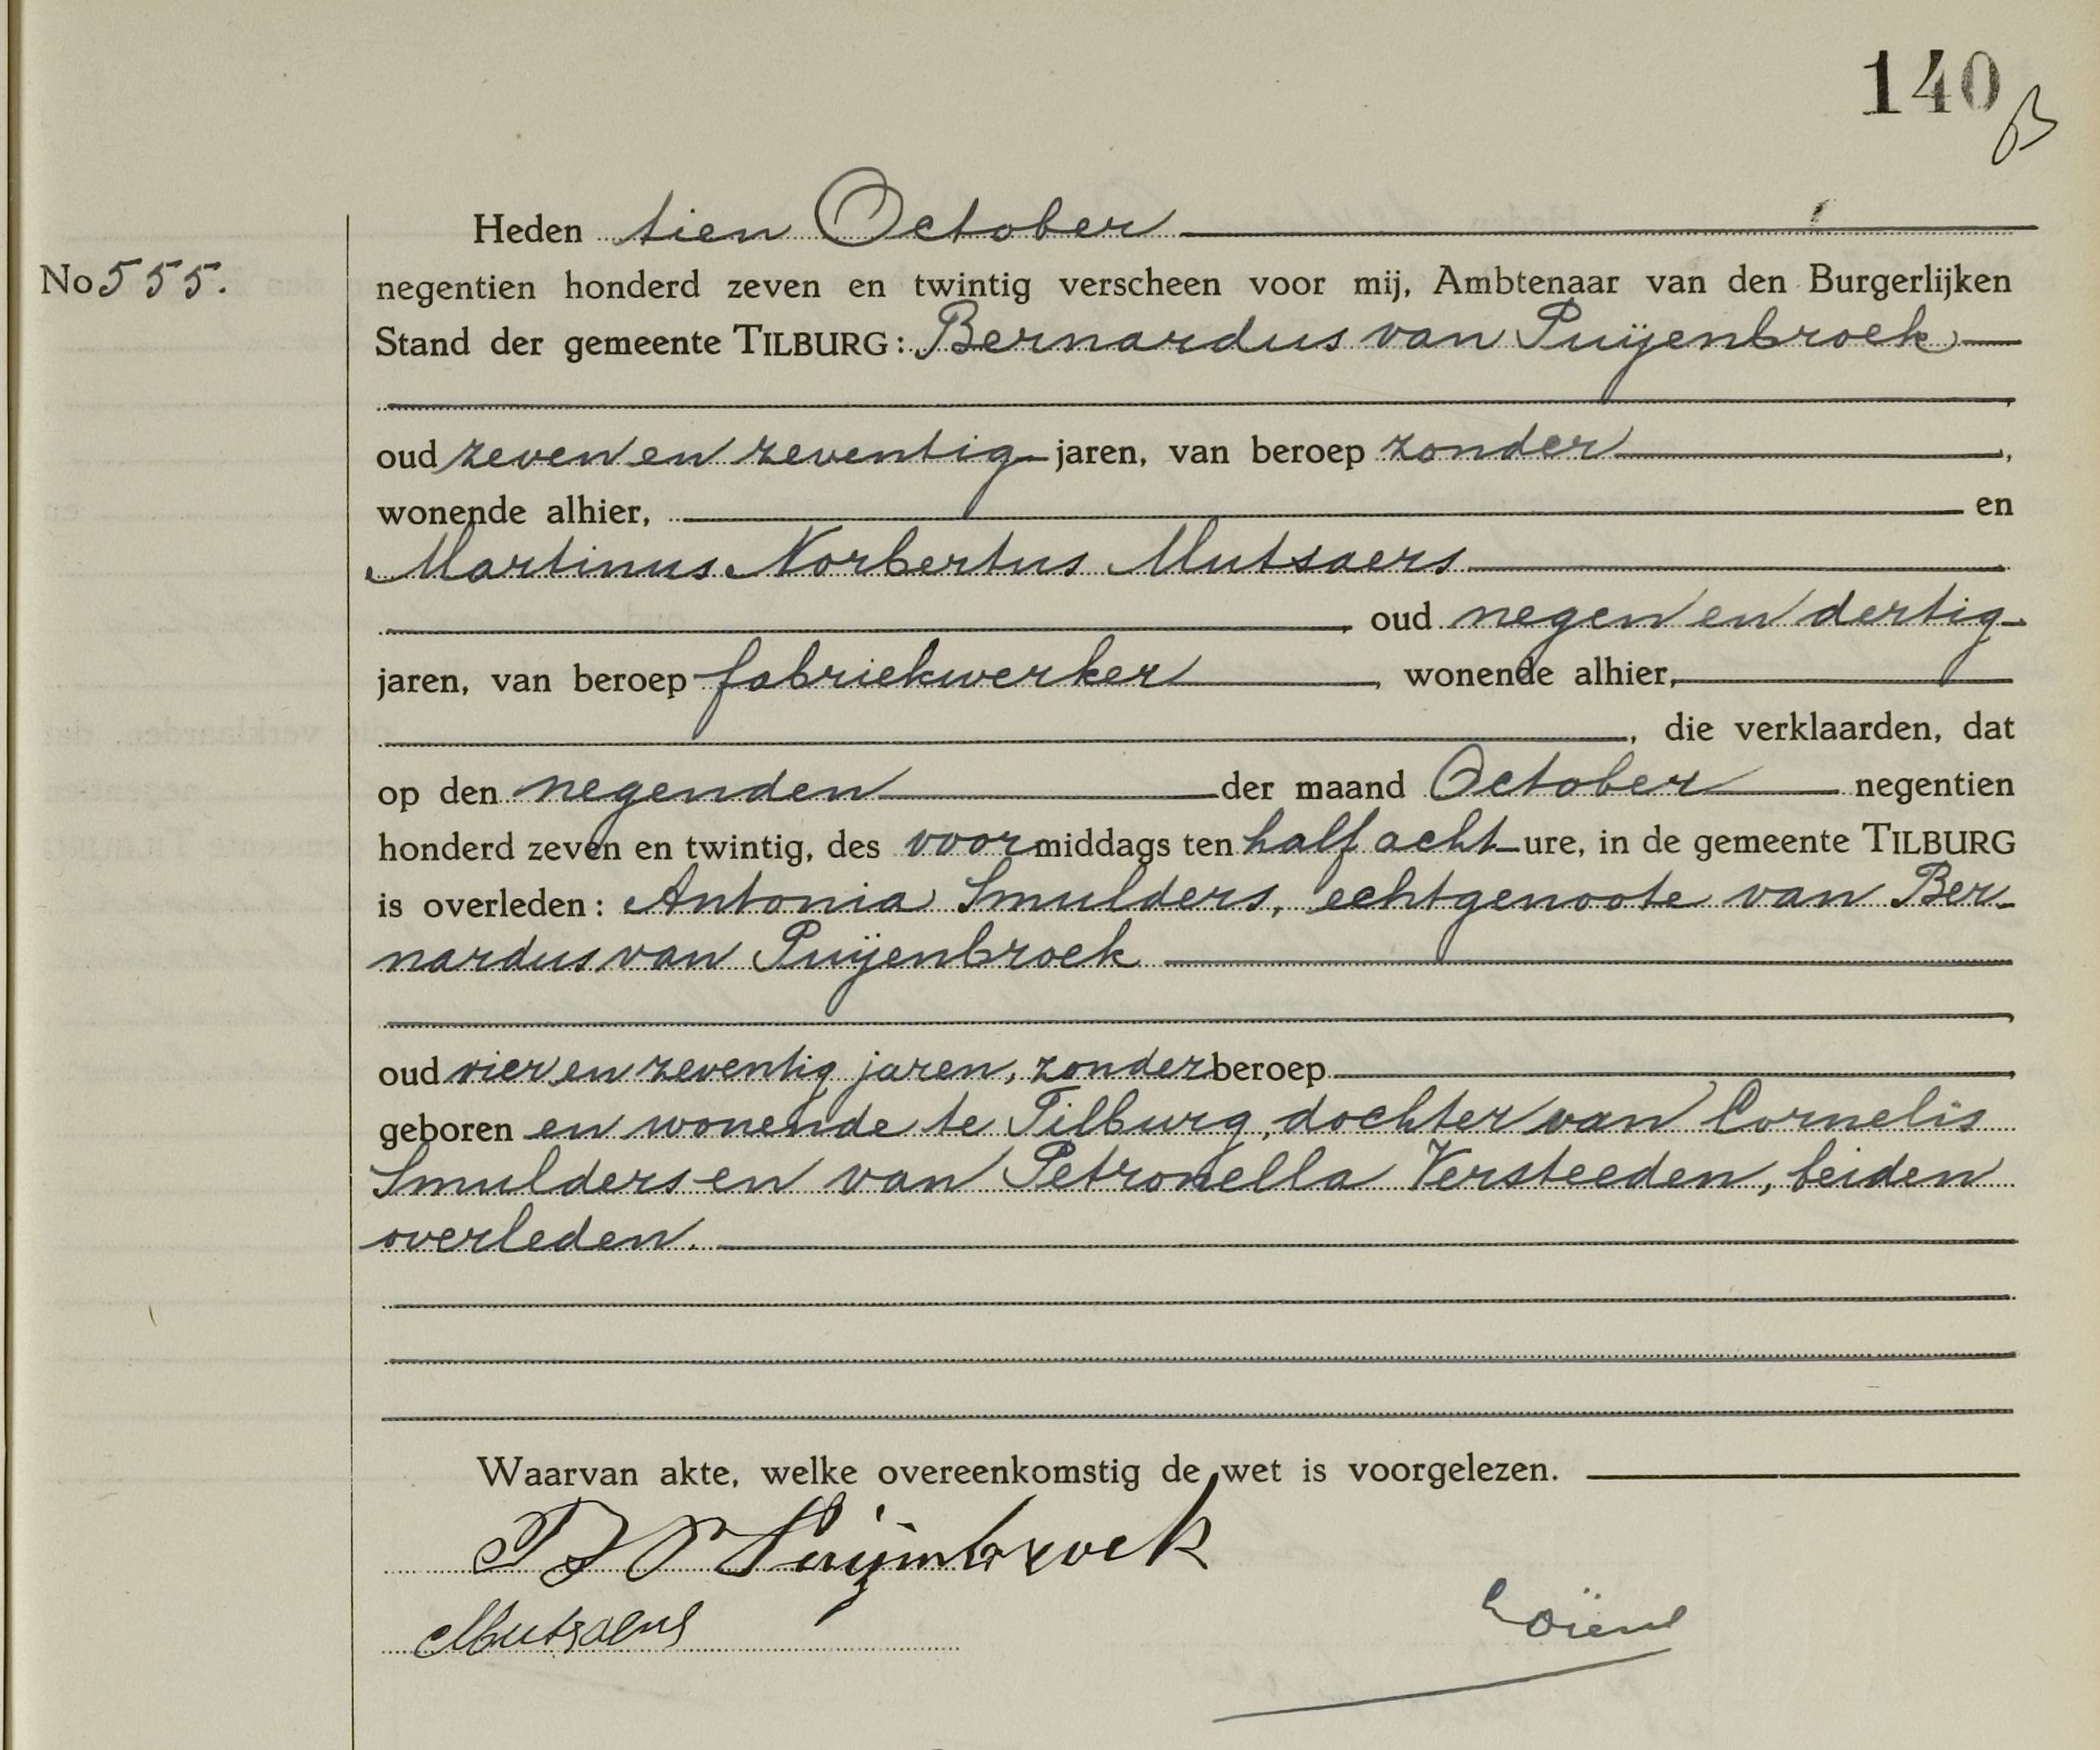 140
Heden tien October
No 555.
negentien honderd zeven en twintig verscheen voor mij, Ambtenaar van den Burgerlijken
Stand der gemeente TILBURG: Bernardus van Puijenbroek
oud zeven en zeventig jaren, van beroep zonder,
wonende alhier, en
Martinus Norbertus Mutsaers
, oud negen en dertig
jaren, van beroep fabriekwerker, wonende alhier,
, die verklaarden, dat
op den negenden der maand October negentien
honderd zeven en twintig, des voormiddags ten half acht ure, in de gemeente TILBURG
is overleden: Antonia Smulders, echtgenoote van Ber-
nardus van Puijenbroek
oud vier en zeventig jaren, zonder beroep
geboren en wonende te Tilburg, dochter van Cornelis
Smulders en van Petronella Versteeden, beiden
overleden.
Waarvan akte, welke overeenkomstig de wet is voorgelezen.
Puijmbroek
Mutsaers